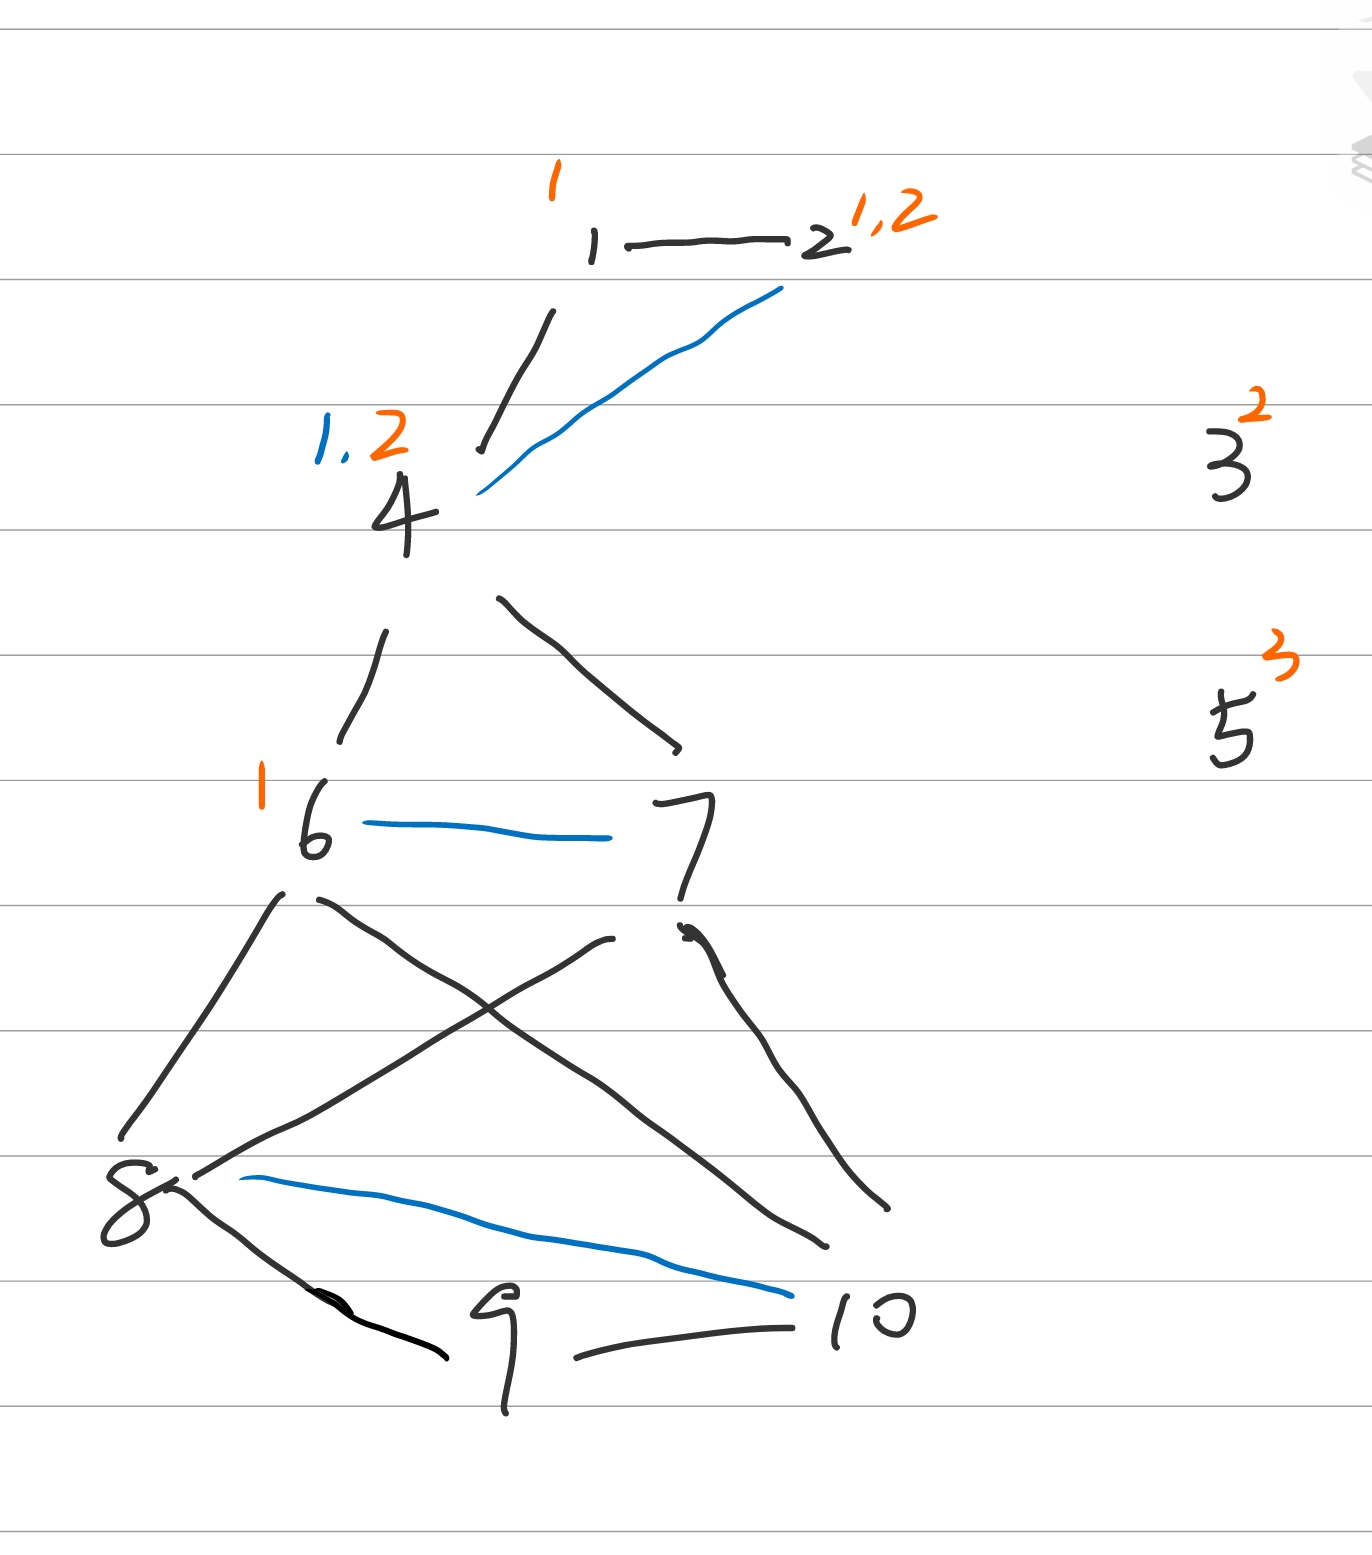 1
1 2 1,2
2
1.2
4 3
3
5
1
6 7
8
9 10